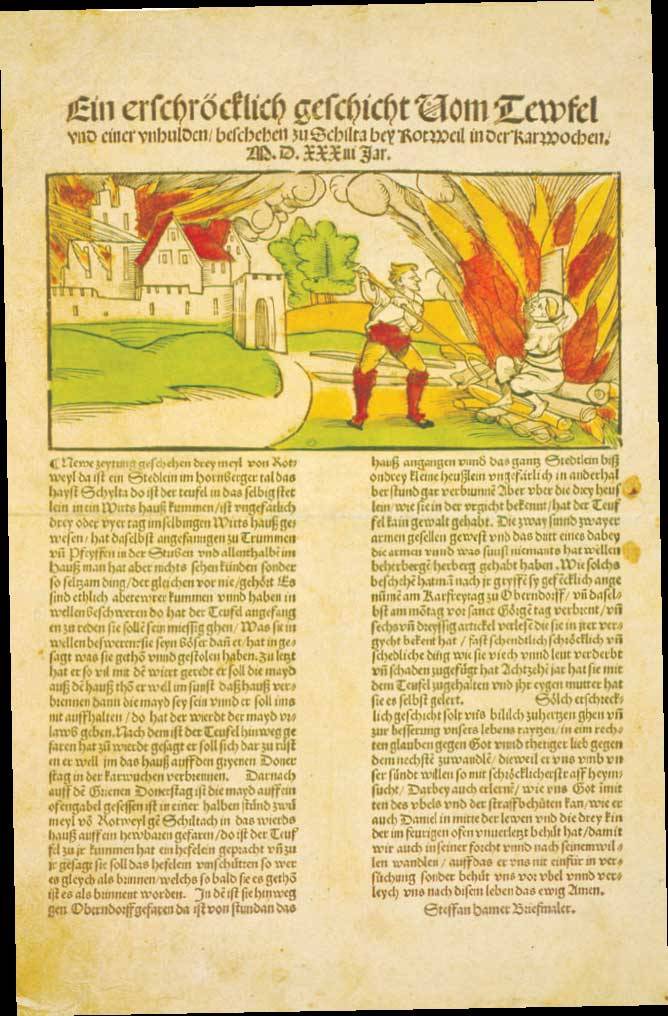 Ein erschröcklich geschicht Vom Tewfel
vnd einer vnhulden/ beschehen zu Schilta bey Rotweil in der Karwochen.
M. D. XXXiii Jar.
¶ Newe zeytung geschehen drey meyl von Rot-
weyl da ist ein Stedlein im hornberger tal das
hayst Schylta do ist der teufel in das selbig stet
lein in ein Wirts hauß kummen/ ist vngefärlich
drey oder vyer tag im selbingen Wirts hauß ge-
wesen/ hat daselbst angefanngen zu Trummen
vñ Pfeyffen in der Stuben vnd allenthalbe im
hauß man hat aber nichts sehen künden sonder
so seltzam ding/ der gleichen vor nie/ gehört Es
sind ethlich abetewrer kummen vnnd haben in
wellen beschweren do hat der Teufel angefang
en zu reden sie sollē sein miessig ghen/ Was sie in
wellen besweren: sie seyn böser dañ er/ hat in ge-
sagt was sie gethō vnnd gestolen haben. Zu letzt
hat er so vil mit dē wirt geredt er soll die mayd
auß dē hauß thō er wel im sunst daß hauß ver-
brennen dann die mayd sey sein vnnd er soll ims
nit auffhalten/ do hat der wierdt der mayd vr-
laws geben. Nach dem ist der Teufel hinweg ge
faren hat zū wierde gesagt er soll sich dar zu rüst
en er well im das hauß auff den gryenen Doner
stag in der karwuchen verbrennen. Darnach
auff dē Grienen Donerstag ist die mayd auff ein
ofengabel gesessen ist in einer halben stünd zwū
meyl vō Rotweyl gē Schiltach in das wierds
hauß auff ein hewbaren gefaren/ do ist der Teuf
fel zu jr kummen hat ein hefelein gepracht vñ zu
jr gesagt sie soll das hefelein vmschütten so wer
es gleych als brinnen/ welchs so bald sie es gethō
ist es als brinnent worden. In dē ist sie hinweg
gen Oberndorff gefaren da ist von stundan das
hauß angangen vnnd das gantz Stedtlein biß
on drey kleine heußlein vngefärlich in anderhal
ber stund gar verbrunnē Aber vber die drey heus
lein/ wie sie in der vrgicht bekenut/ hat der Teuf
fel kain gewalt gehabt. Die zway sinnd zwayer
armen gesellen gewest vnd das dritt eines dabey
die armen vnnd was sunst niemants hat wellen
beherbergē herberg gehabt haben. Wie solchs
beschehē hat mā nach jr gryffē sy gefēcklich ange
nūmē am Karfreytag zu Oberndorff/ vñ dasel-
bst am mōtag vor sanct Görgē tag verbrent/ vñ
sechs vñ dreyssig artickel verlesē die sie in jrer ver-
gycht bekent hat/ fast schendtlich schröcklich vñ
schedliche ding wie sie viech vnnd leut verderbt
vñ schaden zugefügt hat Achtzehē jar hat sie mit
dem Teufel zugehalten vnnd jhr eygen mutter hat
sie es selbst gelert. Sölch erschreck-
lich geschicht solt vñs bilich zuhertzen ghen vñ
zur besserung vnsers lebens raytzen/ in ein rech-
ten glauben gegen Got vnnd thetiger lieb gegen
dem nechstē zuwandlē/ dieweil er vns vmb vn
ser sündt willen so mit schröcklicher straff heym-
sucht/ Darbey auch erlernē/ wie vns Got imit
ten des vbels vnd der straff behüten kan/ wie er
auch Daniel in mitte der lewen vnd die drey kin
der im feurigen ofen vnuerletzt behüt hat/ damit
wir auch in seiner forcht vnnd nach seinem wil-
len wandlen/ auff das er vns nit einfür in ver-
süchung sonder behüt vns vor vbel vnnd ver-
leych vns nach disem leben das ewig Amen.
Steffan Hamer Briefmaler.